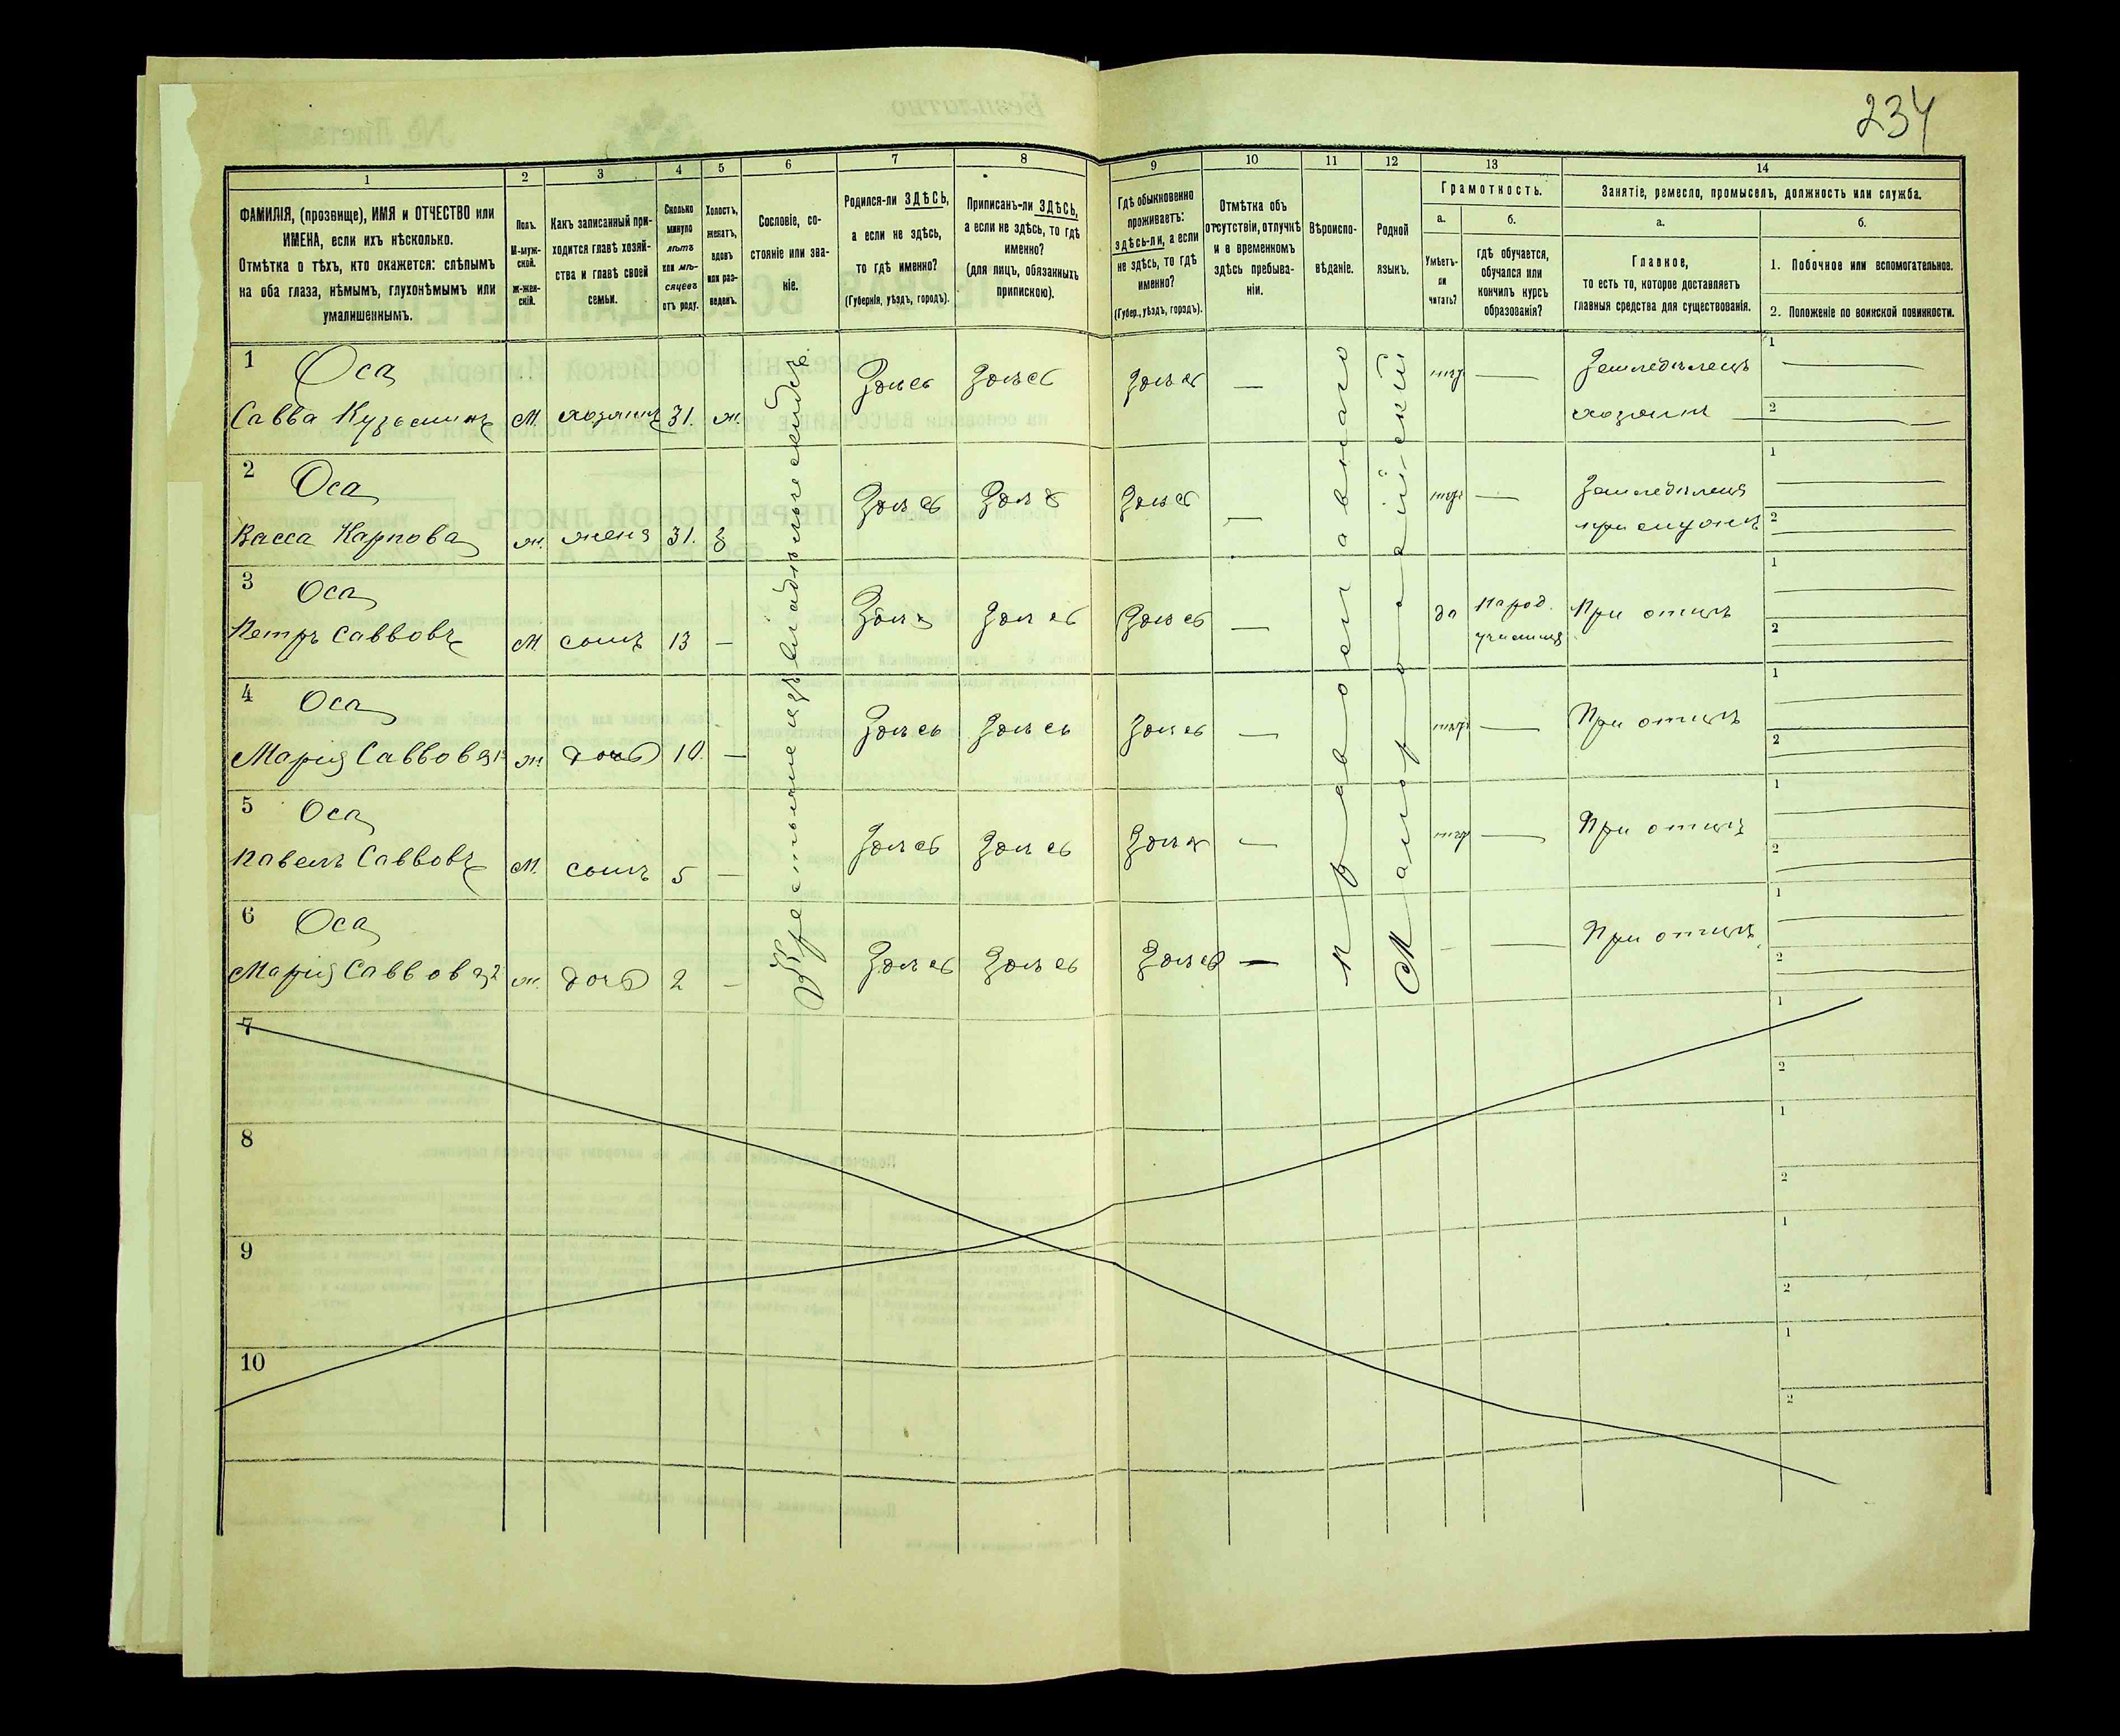 234
1 2 3 4 5 6 7 8 9 10 11 12 13 14
ФАМИЛІЯ, (прозвище), ИМЯ и ОТЧЕСТВО или
ИМЕНА, если ихъ нѣсколько.
Отмѣтка о тѣхъ, кто окажется: слѣпымъ
на оба глаза, нѣмымъ, глухонѣмымъ или
умалишеннымъ.
Полъ.
М-муж-
ской.
Ж-жен-
скій.
Какъ записанный при-
ходится главѣ хозяй-
ства и главѣ своей
семьи.
Сколько
минуло
лѣтъ
или мѣ-
сяцевъ
отъ роду.
Холостъ,
женатъ,
вдовъ
или раз-
веденъ.
Сословіе, со-
стояніе или зва-
ніе.
Родился-ли ЗДѢСЬ,
а если не здѣсь,
то гдѣ именно?
(Губернія, уѣздъ, городъ).
Приписанъ-ли ЗДѢСЬ,
а если не здѣсь, то гдѣ
именно?
(для лицъ, обязанныхъ
припискою).
Гдѣ обыкновенно
проживаетъ:
здѣсь-ли, а если
не здѣсь, то гдѣ
именно?
(Губер., уѣздъ, городъ).
Отмѣтка объ
отсутствіи, отлучкѣ
и о временномъ
здѣсь пребыва-
ніи.
Вѣроиспо-
вѣданіе.
Родной
языкъ.
Грамотность.
а.
Умѣетъ-
ли
читать?
б.
гдѣ обучается,
обучался или
кончилъ курсъ
образованія?
Занятіе, ремесло, промыселъ, должность или служба.
а.
Главное,
то есть то, которое доставляетъ
главныя средства для существованія.
б.
1. Побочное или вспомогательное.
2. Положеніе по воинской повинности.
Крестьянъ владѣльческихъ
Православнаго
Малороссійскій
1 Оса Здѣсь Здѣсь Здѣсь — нѣтъ — Земледѣлецъ 1
Савва Кузьминъ М. хозяинъ 31. ж. хозяинъ 2
2 Оса Здѣсь Здѣсь Здѣсь — нѣтъ — Земледѣлецъ 1
Васса Карпова ж. жена 31. з при мужѣ 2
3 Оса Здѣсь Здѣсь Здѣсь — да Народ. При отцѣ 1
Петръ Саввовъ М сынъ 13 — училищѣ 2
4 Оса Здѣсь Здѣсь Здѣсь — нѣтъ — При отцѣ 1
Марія Саввова 1 ж. дочь 10. — 2
5 Оса Здѣсь Здѣсь Здѣсь — нѣтъ — При отцѣ 1
Павелъ Саввовъ М. сынъ 5 — 2
6 Оса Здѣсь Здѣсь Здѣсь — - — При отцѣ 1
Марія Саввова 2 ж. дочь 2 — 2
7 1
2
8 1
2
9 1
2
10 1
2